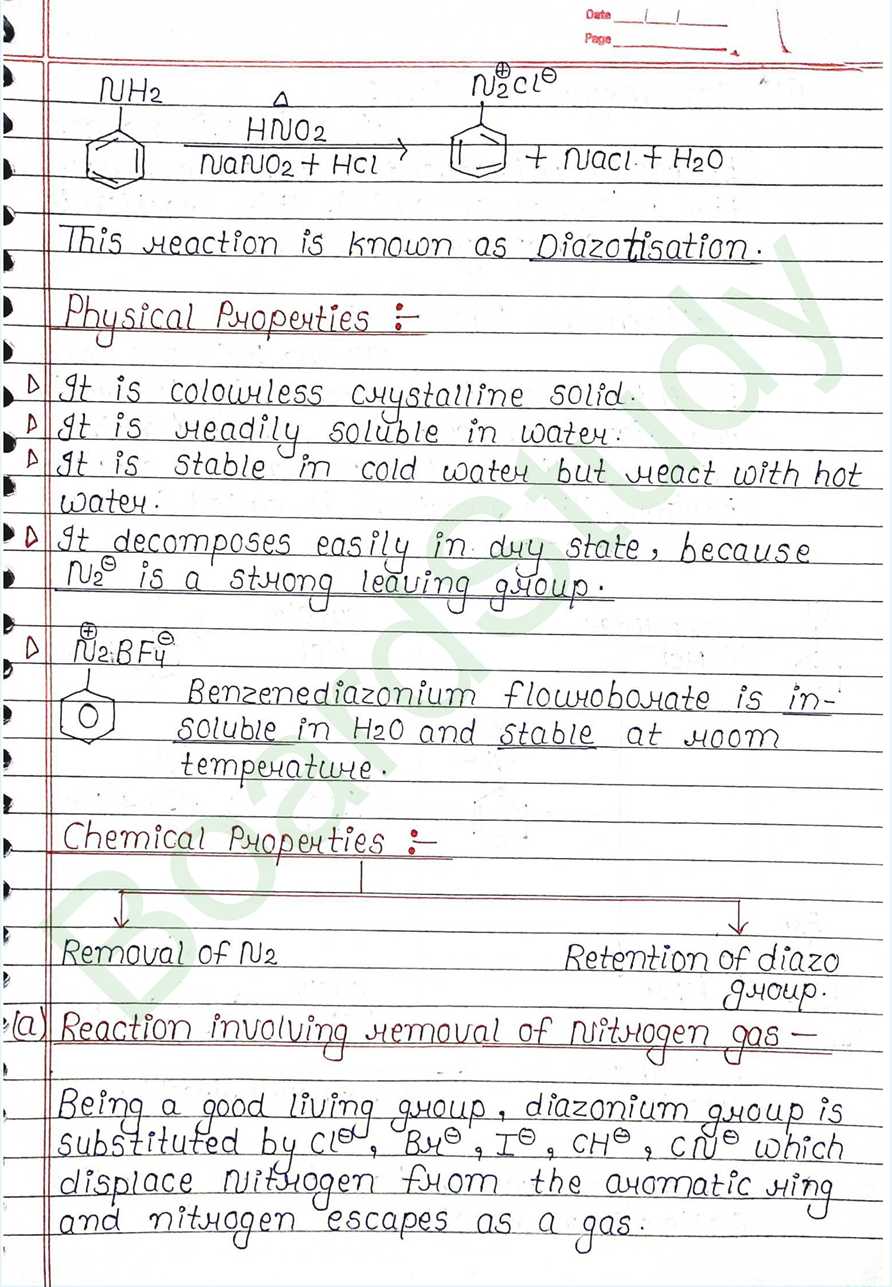 Date
Page
NH2
N2⊕Cl⊖
Δ
HNO2
NaNO2 + HCl
+ NaCl + H2O
This reaction is known as Diazotisation.
Physical Properties :-
▷ It is colourless crystalline solid.
▷ It is readily soluble in water.
▷ It is stable in cold water but react with hot
water.
▷ It decomposes easily in dry state, because
N2⊖ is a strong leaving group.
▷ N2⊕BF4⊖
Benzenediazonium flouroborate is in-
soluble in H2O and stable at room
temperature.
Chemical Properties :-
Removal of N2
Retention of diazo
group.
(a) Reaction involving removal of Nitrogen gas -
Being a good living group, diazonium group is
substituted by Cl⊖, Br⊖, I⊖, CH⊖, CN⊖ which
displace Nitrogen from the aromatic ring
and nitrogen escapes as a gas.
BoardStudy